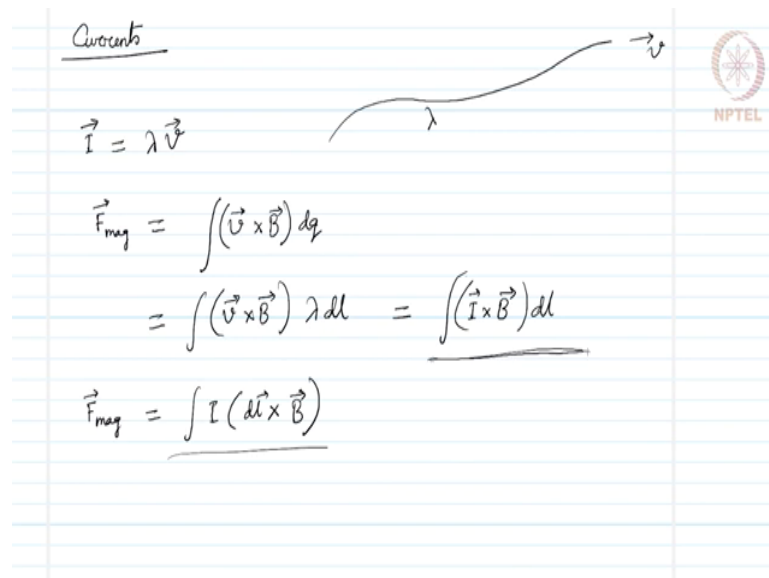 Currents
→v
λ
NPTEL
\vec{I} = λ\vec{v}
\vec{F}_{mag} = ∫(\vec{v} × \vec{B}) dq
= ∫(\vec{v} × \vec{B}) λ dl = ∫(\vec{I} × \vec{B}) dl
\vec{F}_{mag} = ∫ I (\vec{dl} × \vec{B})